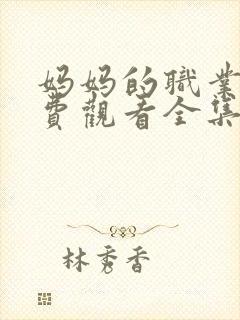 妈妈的職業
費觀看全集
林秀香